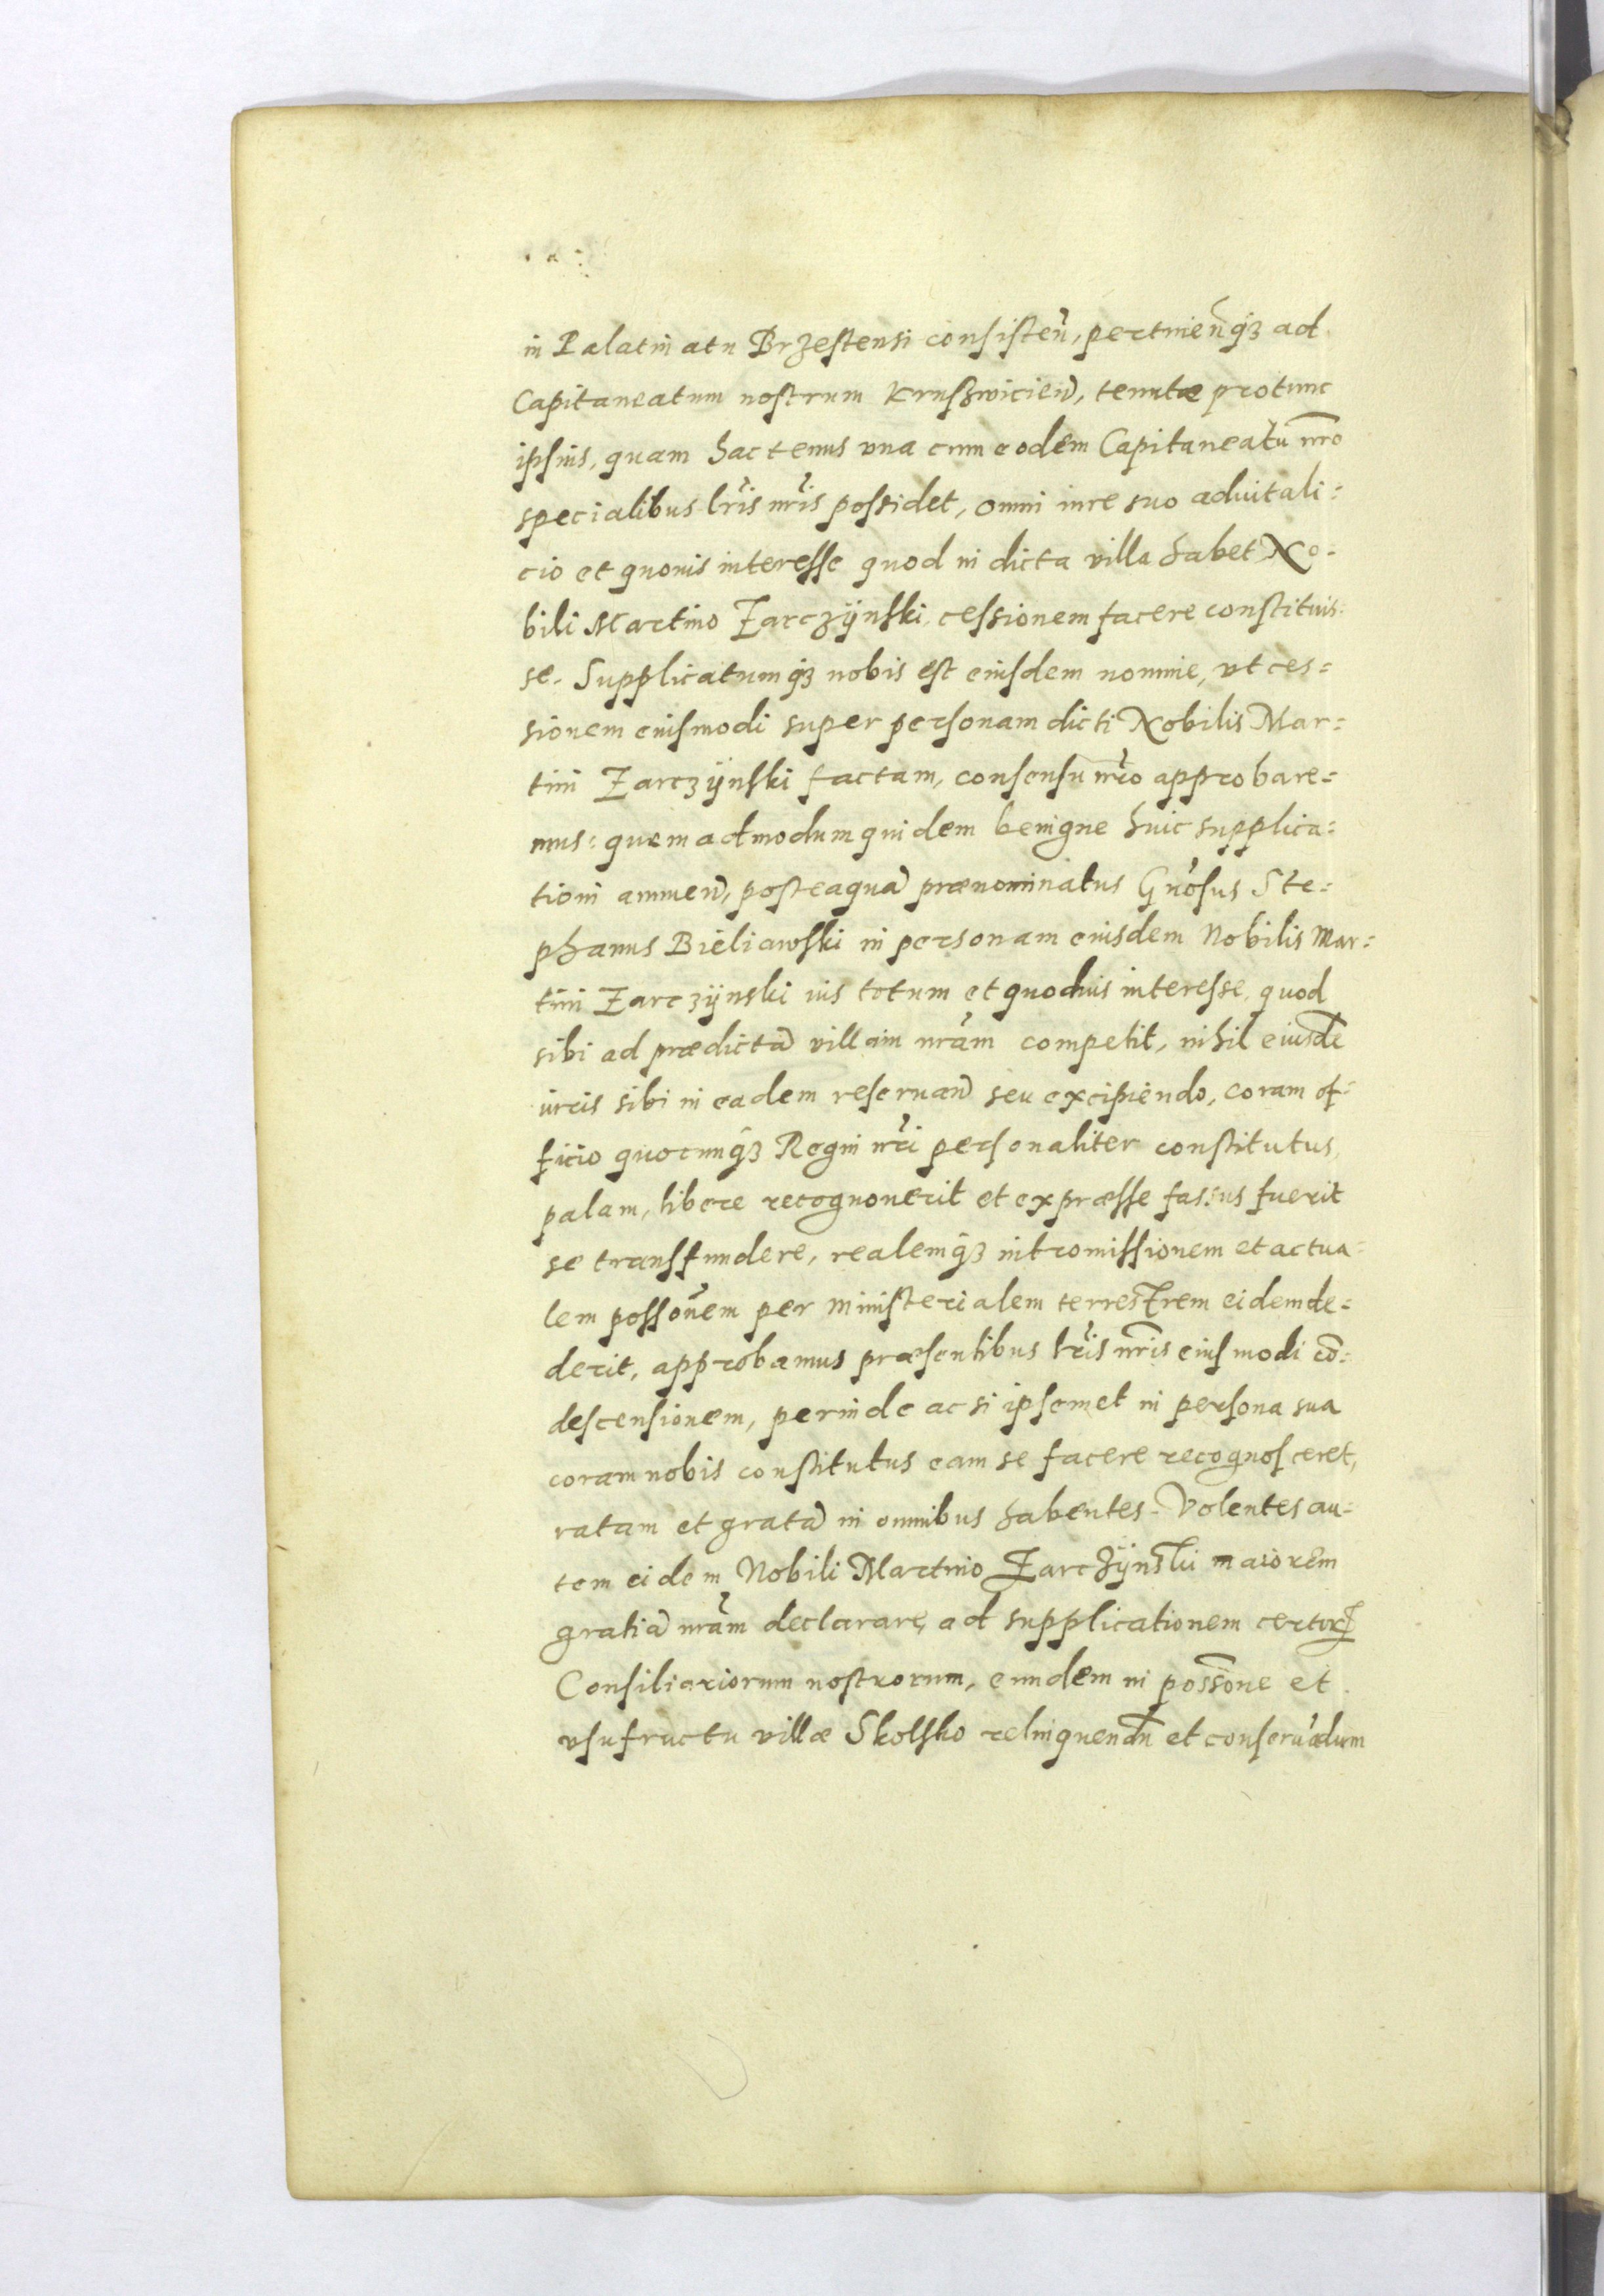 in Palatinatu Brzestensi consisteñ, pertinenq̃ꝫ ad
Capitaneatum nostrum Kruszwicien̄, tenutæ protunc
ipsius, quam hactenus una cum eodem Capitaneatu nr̄o
specialibus lr̃is nr̃is possidet, omni iure suo aduitali:
cio et quouis interesse quod in dicta villa habet No:
bili Martino Zarczÿnski, cessionem facere constituis:
se. Supplicatumq̃ꝫ nobis est eiusdem nomine, vt ces=
sionem eiusmodi super personam dicti Nobilis Mar=
tini Zarczÿnski factam, consensu nr̃o approbare=
mus: quemadmodum quidem benigne huic supplica=
tioni annuen̄, posteaquā prænominatus Gñosus Ste=
phanus Bieliawski in personam eiusdem Nobilis Mar=
tini Zarczÿnski ius totum et quoduis interesse, quod
sibi ad prædictā villam nr̃am competit, nihil eiusdē
iuris sibi in eadem reseruan̄ seu excipiendo, coram of=
ficio quocunq̃ꝫ Regni nr̃i personaliter constitutus,
palam, libere recognouerit et expræsse fassus fuerit
se transfundere, realemq̃ꝫ intromissionem et actua=
lem possoñem per ministerialem terrestrem eidem de=
derit, approbamus præsentibus lr̃is nr̃is eiusmodi cō=
descensionem, perinde ac si ipsemet in persona sua
coram nobis constitutus eam se facere recognosceret,
ratam et gratā in omnibus habentes. Volentes au=
tem eidem Nobili Martino Zarczÿnski maiorem
gratiā nr̃am declarare, ad supplicationem certorꝝ
Consiliariorum nostrorum, eundem in possōne et
vsufructu villæ Skolsko relinquendū et conseruãdum